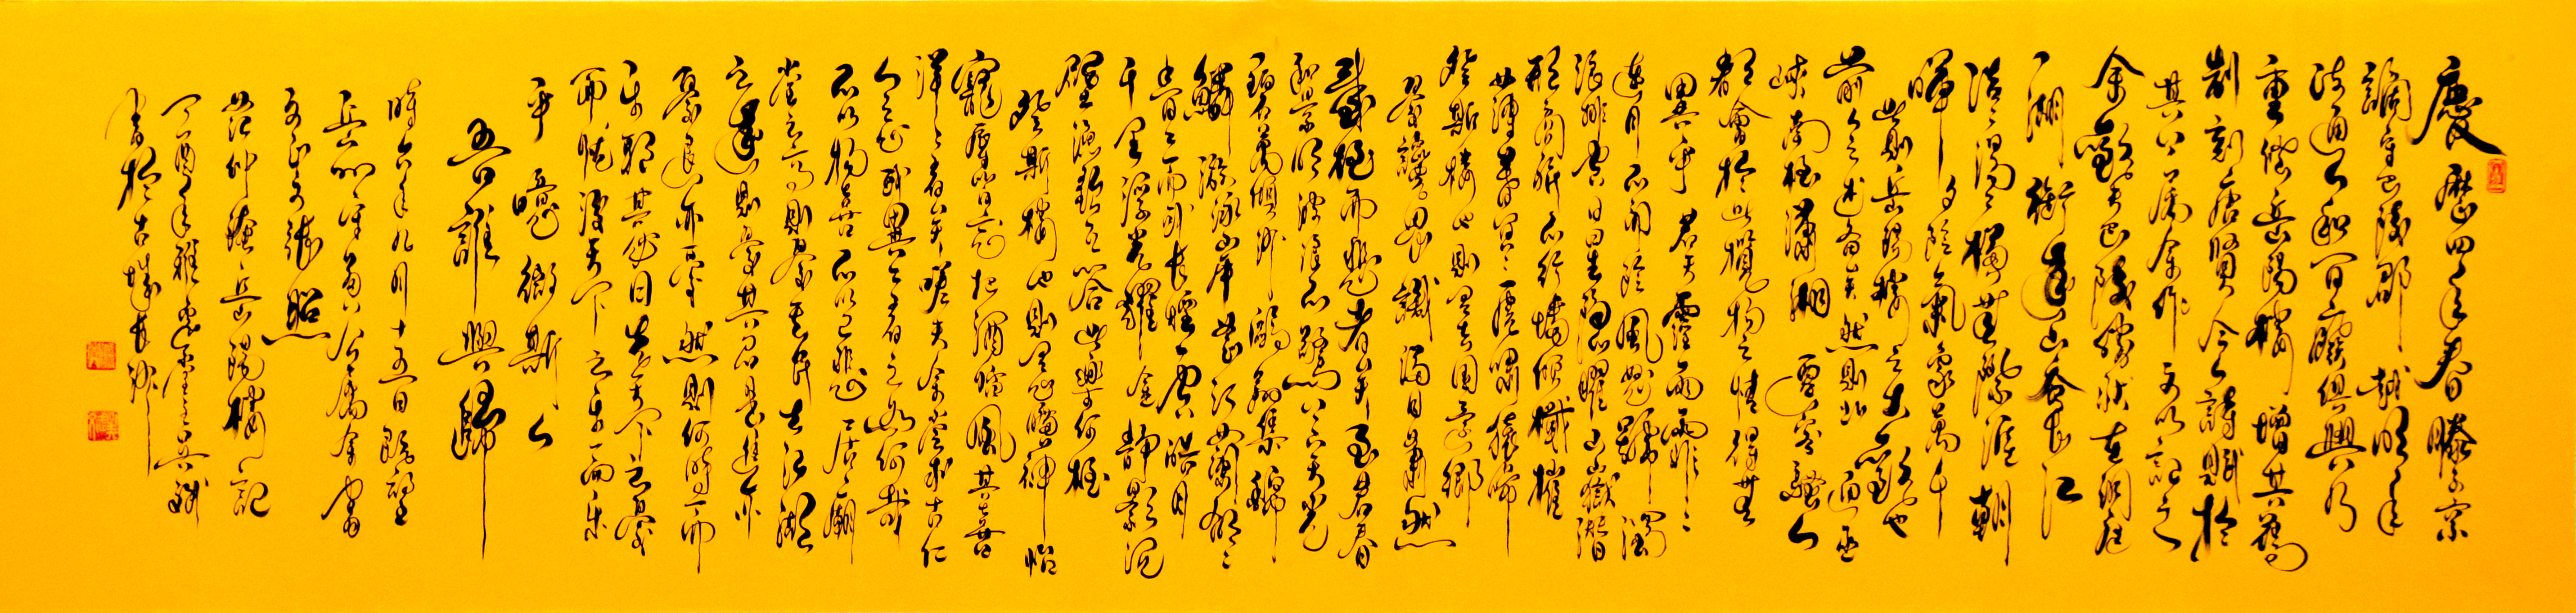 慶曆四年春滕子京
謫守巴陵郡越明年
政通人和百廢俱興乃
重修岳陽樓增其舊
制刻唐賢今人詩賦於
其上屬余作文以記之
余觀夫巴陵勝狀在洞庭
一湖銜遠山吞長江
浩浩湯湯橫無際涯朝
暉夕陰氣象萬千
此則岳陽樓之大觀也
前人之述備矣然則北通巫
峽南極瀟湘遷客騷人
多會於此覽物之情得無
異乎若夫霪雨霏霏
連月不開陰風怒號濁
浪排空日星隱耀山嶽潛
形商旅不行檣傾楫摧
薄暮冥冥虎嘯猿啼
登斯樓也則有去國懷鄉
憂讒畏譏滿目蕭然
感極而悲者矣至若春
和景明波瀾不驚上下天光
一碧萬頃沙鷗翔集錦
鱗游泳岸芷汀蘭郁郁
青青而或長煙一空皓月
千里浮光耀金靜影沉
璧漁歌互答此樂何極
登斯樓也則有心曠神怡
寵辱皆忘把酒臨風其喜
洋洋者矣嗟夫余嘗求古仁
人之心或異二者之為何哉
不以物喜不以己悲居廟
堂之高則憂其民處江湖
之遠則憂其君是進亦
憂退亦憂然則何時而
樂耶其必曰先天下之憂
而憂後天下之樂而樂
乎噫微斯人
吾誰與歸
時六年九月十五日
屬余書
范仲淹岳陽樓記
丁酉年
書於古城長沙